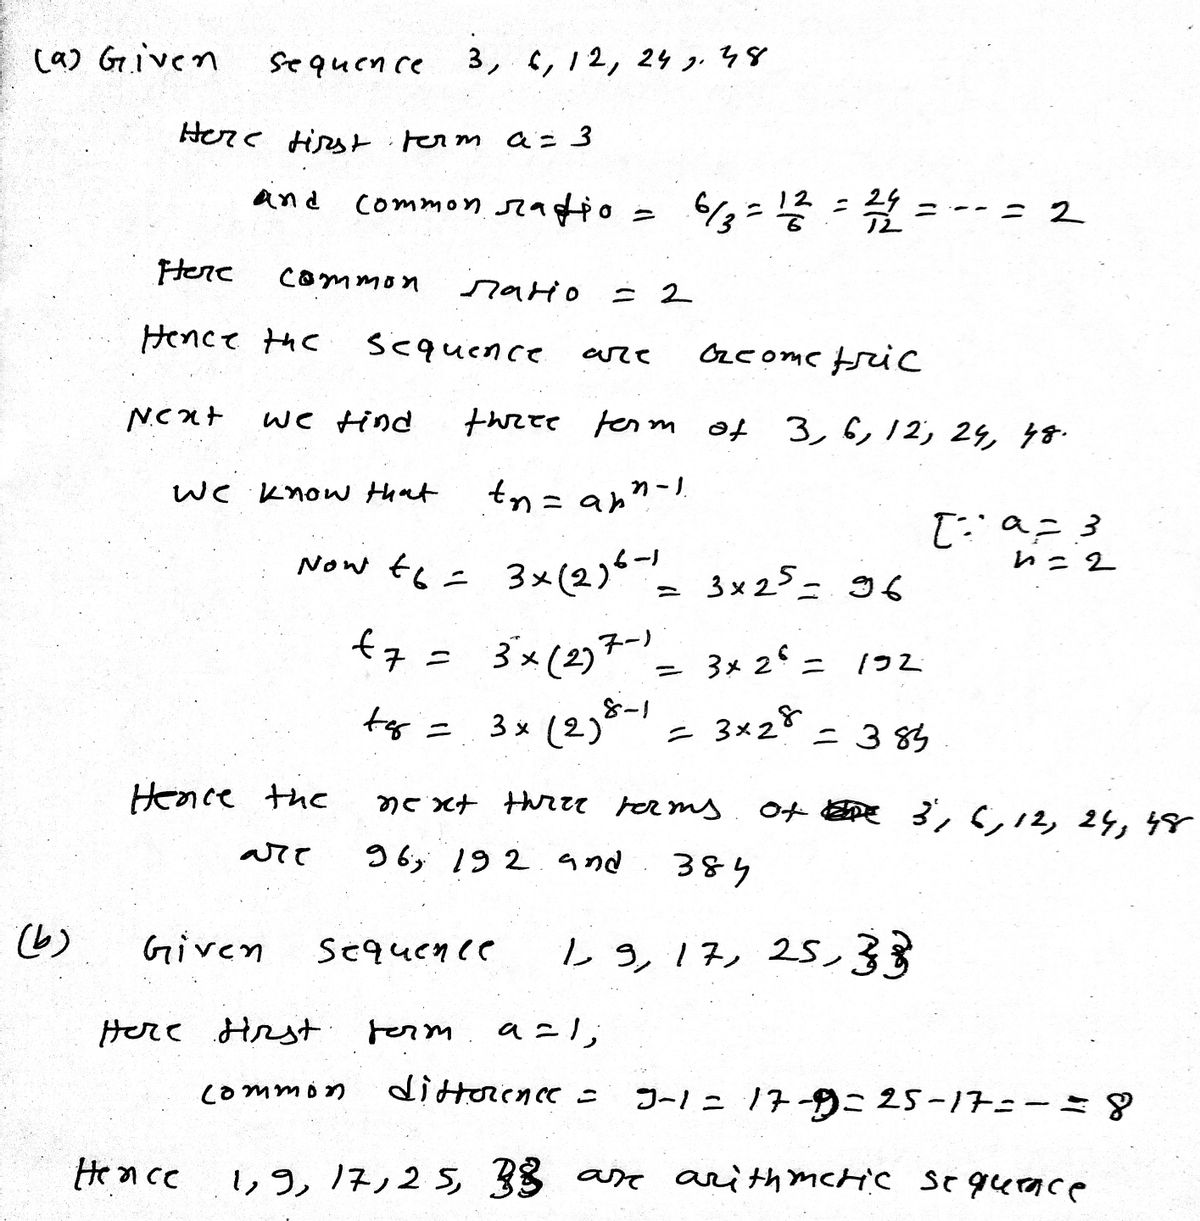 (a) Given sequence 3, 6, 12, 24, 48
Here first term a = 3
and common ratio = 6/3 = 12/6 = 24/12 = --- = 2
Here common ratio = 2
Hence the sequence are Geometric
Next we find three term of 3, 6, 12, 24, 48.
We know that tn = ar^n-1
[∵ a = 3
r = 2
Now t6 = 3×(2)^6-1 = 3×2^5 = 96
t7 = 3×(2)^7-1 = 3×2^6 = 192
t8 = 3×(2)^8-1 = 3×2^8 = 384
Hence the next three terms of 3, 6, 12, 24, 48
are 96, 192 and 384
(b) Given sequence 1, 9, 17, 25, 33
Here first term a = 1,
common difference = 9-1 = 17-9 = 25-17 = -- = 8
Hence 1, 9, 17, 25, 33 are arithmetic sequence